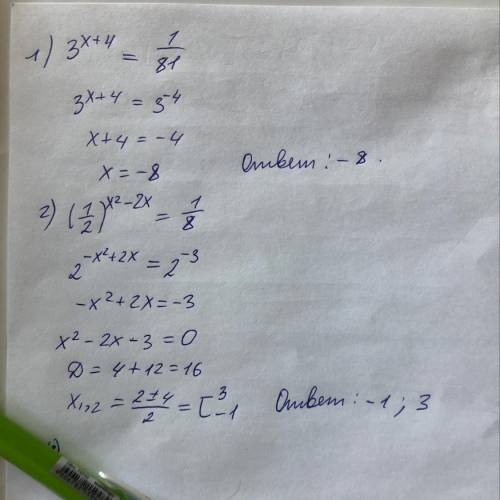 1) 3^(x+4) = 1/81
3^(x+4) = 3^(-4)
x+4 = -4
x = -8
Ответ: -8.
2) (1/2)^(x²-2x) = 1/8
2^(-x²+2x) = 2^(-3)
-x²+2x = -3
x²-2x-3 = 0
D = 4+12 = 16
x₁,₂ = (2±4)/2 = [3 -1
Ответ: -1; 3